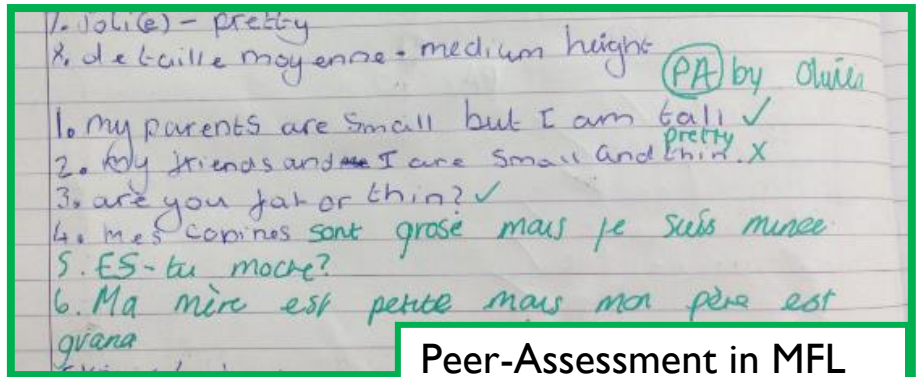 1. Joli(e) - pretty
X. de taille moyenne - medium height
(PA) by
1. my parents are small but I am tall ✓
pretty
2. My friends and I are small and thin. X
3. are you fat or thin? ✓
4. mes copines sont grose mais je suis mince
5. ES-tu moche?
6. Ma mère est petite mais mon père est
grand
Peer-Assessment in MFL